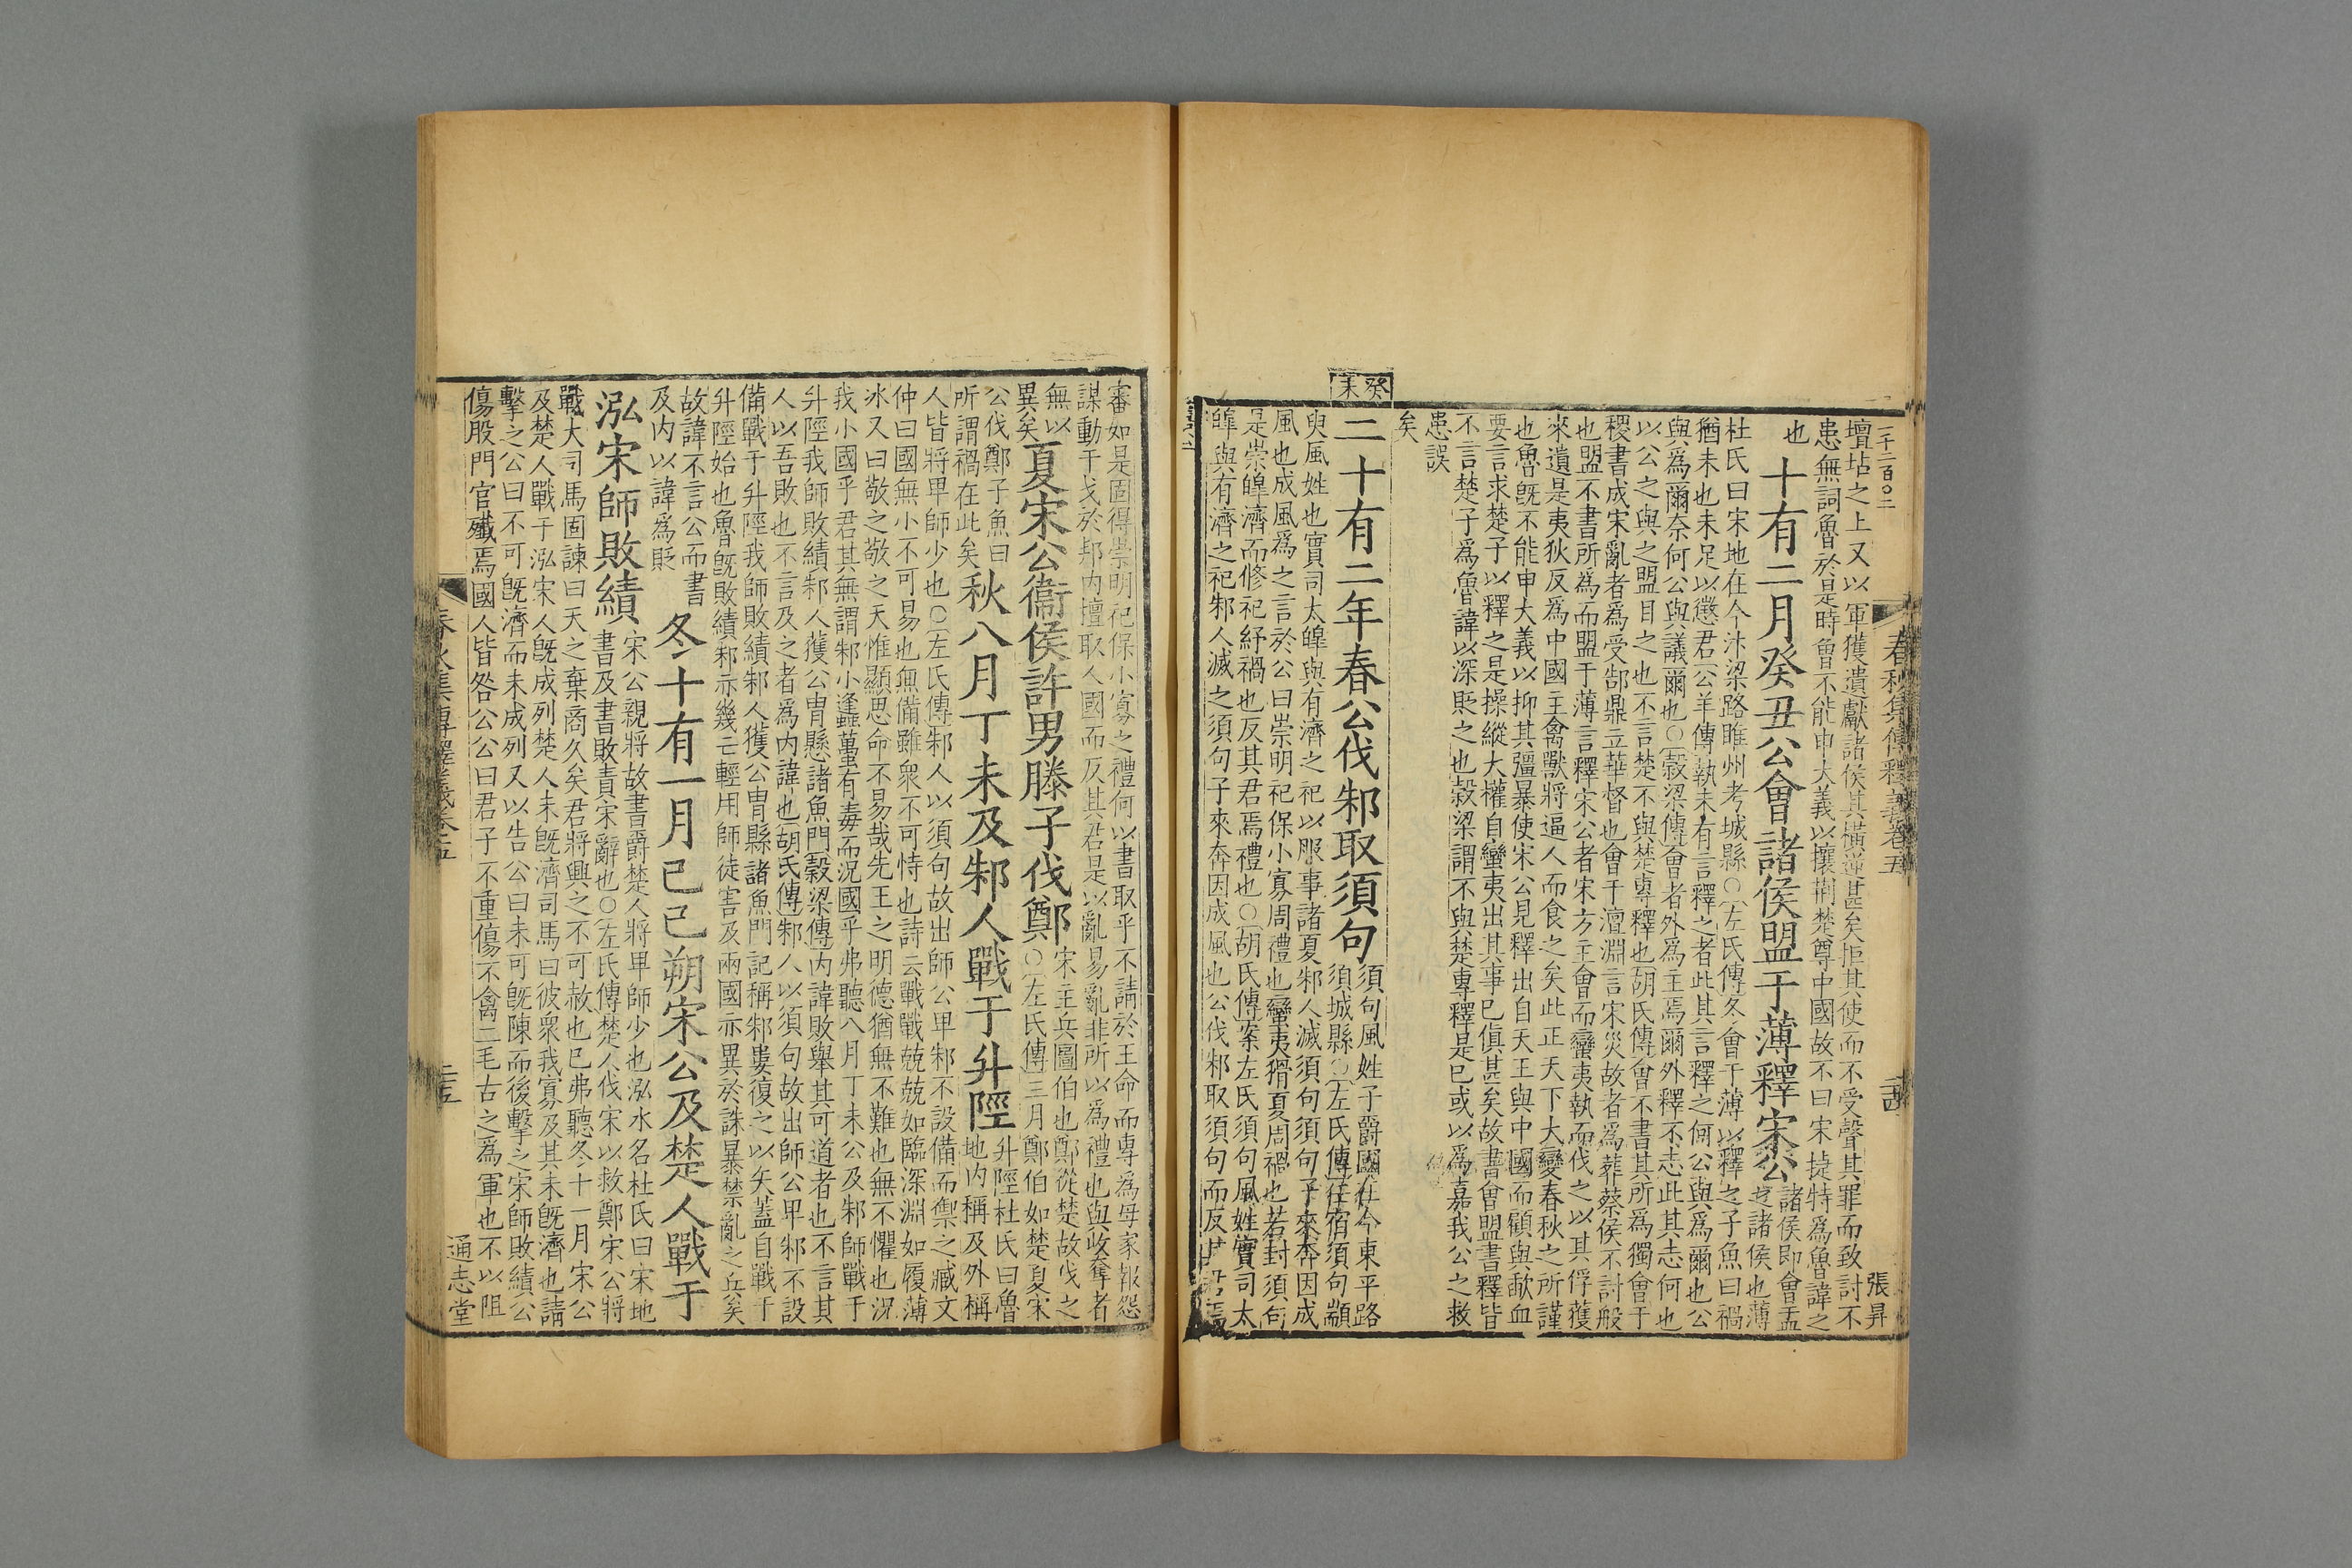 一千二百〇二
春秋集傳釋義卷五
張昇
壇坫之上又以軍獲遺獻諸侯其橫逆甚矣拒其使而不受聲其罪而致討不
患無詞魯於是時曾不能申大義以攘荆楚尊中國故不曰宋捷特爲魯諱之
也
十有二月癸丑公會諸侯盟于薄釋宋公
諸侯即會盂
之諸侯也薄
杜氏曰宋地在今汴梁路睢州考城縣〇左氏傳冬會于薄以釋之子魚曰禍
猶未也未足以懲君公羊傳執未有言釋之者此其言釋之何公與爲爾也公
與爲爾奈何公與議爾也〇穀梁傳會者外爲主焉爾外釋不志此其志何也
以公之與之盟目之也不言楚不與楚專釋也胡氏傳會不書其所爲獨會于
稷書成宋亂者爲受郜鼎立華督也會于澶淵言宋災故者爲葬蔡侯不討般
也盟不書所爲而盟于薄言釋宋公者宋方主會而蠻夷執而伐之以其俘獲
來遺是夷狄反爲中國主禽獸將逼人而食之矣此正天下大變春秋之所謹
也魯旣不能申大義以抑其彊暴使宋公見釋出自天王與中國而顧與歃血
要言求楚子以釋之是操縱大權自蠻夷出其事已傎甚矣故書會盟書釋皆
不言楚子爲魯諱以深貶之也穀梁謂不與楚專釋是已或以爲嘉我公之救
患誤
矣
癸未
二十有二年春公伐邾取須句
須句風姓子爵國在今東平路
須城縣〇左氏傳任宿須句顓
臾風姓也實司太皥與有濟之祀以服事諸夏邾人滅須句須句子來奔因成
風也成風爲之言於公曰崇明祀保小寡周禮也蠻夷猾夏周禍也若封須句
是崇皥濟而修祀紓禍也反其君焉禮也〇胡氏傳案左氏須句風姓實司太
皥與有濟之祀邾人滅之須句子來奔因成風也公伐邾取須句而反其君焉
審如是固得崇明祀保小寡之禮何以書取乎不請於王命而專爲母家報怨
謀動干戈於邦內擅取人國而反其君是以亂易亂非所以爲禮也與收奪者
無以
異矣
夏宋公衞侯許男滕子伐鄭
宋主兵圖伯也鄭從楚故伐之
〇左氏傳三月鄭伯如楚夏宋
公伐鄭子魚曰
所謂禍在此矣
秋八月丁未及邾人戰于升陘
升陘杜氏曰魯
地內稱及外稱
人皆將卑師少也〇左氏傳邾人以須句故出師公卑邾不設備而禦之臧文
仲曰國無小不可易也無備雖衆不可恃也詩云戰戰兢兢如臨深淵如履薄
冰又曰敬之敬之天惟顯思命不易哉先王之明德猶無不難也無不懼也況
我小國乎君其無謂邾小蠭蠆有毒而況國乎弗聽八月丁未公及邾師戰于
升陘我師敗績邾人獲公冑懸諸魚門穀梁傳內諱敗舉其可道者也不言其
人以吾敗也不言及之者爲內諱也胡氏傳邾人以須句故出師公卑邾不設
備戰于升陘我師敗績邾人獲公冑縣諸魚門記稱邾婁復之以矢蓋自戰于
升陘始也魯旣敗績邾亦幾亡輕用師徒害及兩國亦異於誅暴禁亂之兵矣
故諱不言公而書
及內以諱爲貶
冬十有一月己巳朔宋公及楚人戰于
泓宋師敗績
宋公親將故書爵楚人將卑師少也泓水名杜氏曰宋地
書及書敗責宋辭也〇左氏傳楚人伐宋以救鄭宋公將
戰大司馬固諫曰天之棄商久矣君將興之不可赦也已弗聽冬十一月宋公
及楚人戰于泓宋人旣成列楚人未旣濟司馬曰彼衆我寡及其未旣濟也請
擊之公曰不可旣濟而未成列又以告公曰未可旣陳而後擊之宋師敗績公
傷股門官殲焉國人皆咎公公曰君子不重傷不禽二毛古之爲軍也不以阻
通志堂